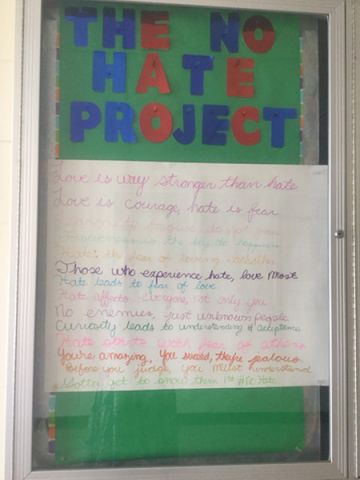 THE NO
HATE
PROJECT
Love is way stronger than hate
Love is courage, hate is fear
to forgive do not
is the key to
the fear of loving
Those who experience hate, love most
Hate leads to fear of love
Hate affects everyone, not only you
No enemies, just unknown people
Curiosity leads to understanding & acceptance
Hate starts with fear of others
You're amazing, you succeed, they're jealous
Before you judge, you must understand
Gotta get to know them 1st #NoHate